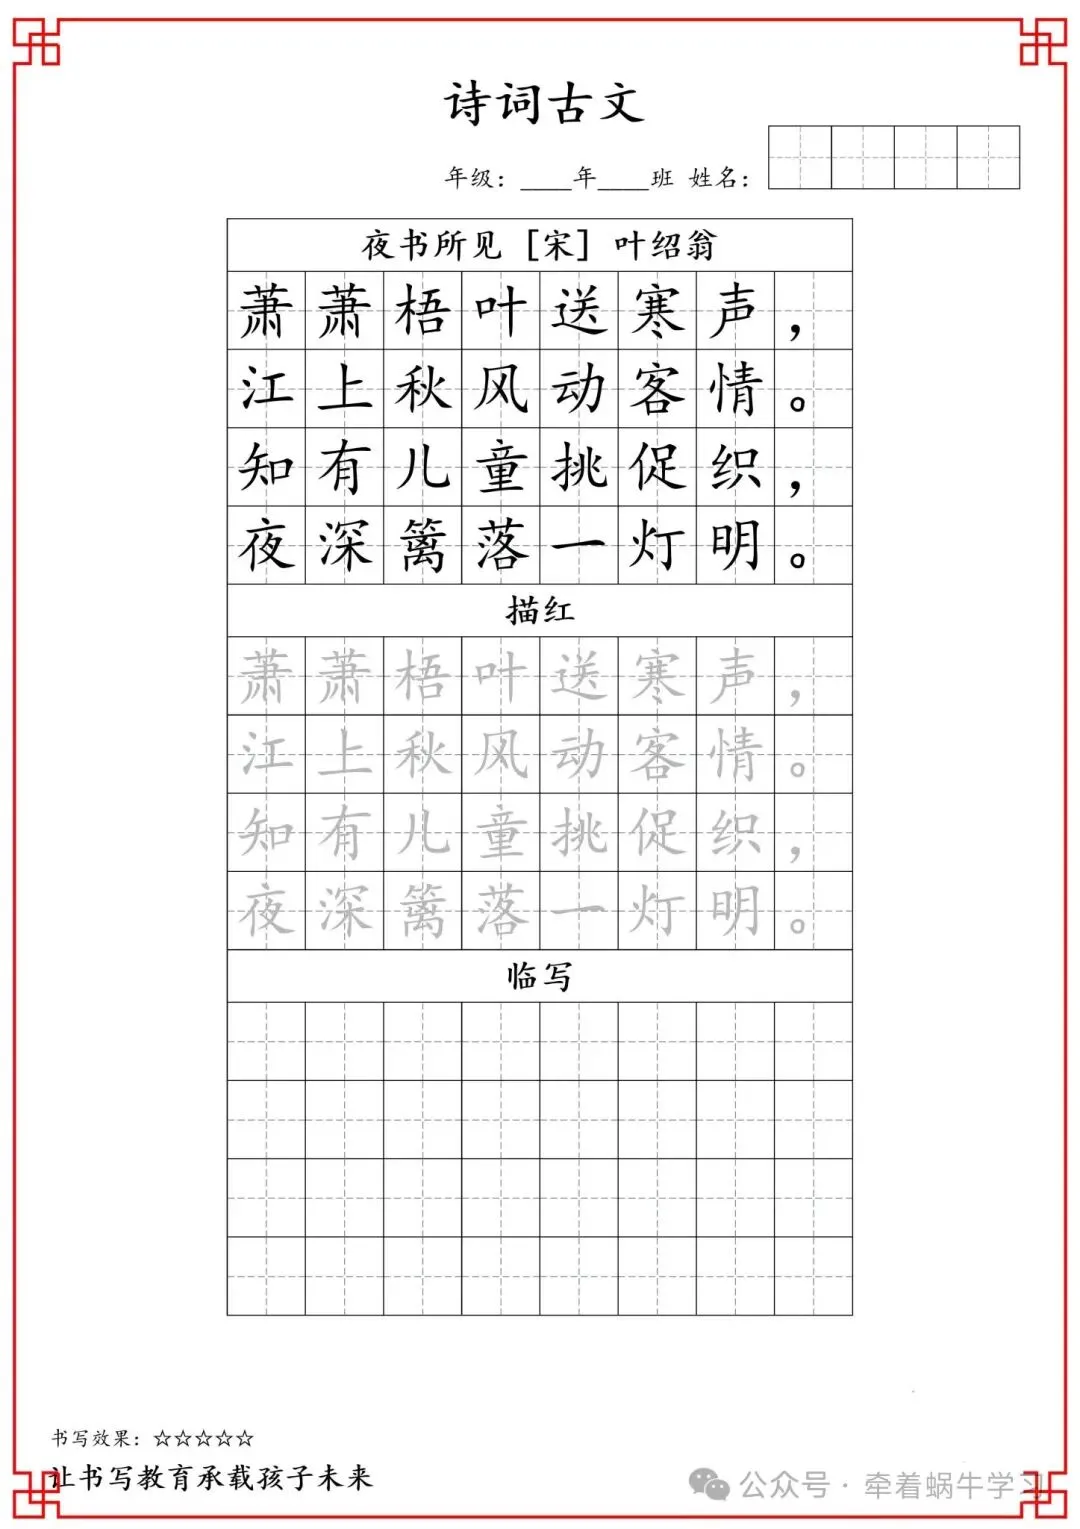 诗词古文
年级：____年____班 姓名：
夜书所见［宋］叶绍翁
萧萧梧叶送寒声，
江上秋风动客情。
知有儿童挑促织，
夜深篱落一灯明。
描红
萧萧梧叶送寒声，
江上秋风动客情。
知有儿童挑促织，
夜深篱落一灯明。
临写
书写效果：☆☆☆☆☆
让书写教育承载孩子未来
公众号·牵着蜗牛学习